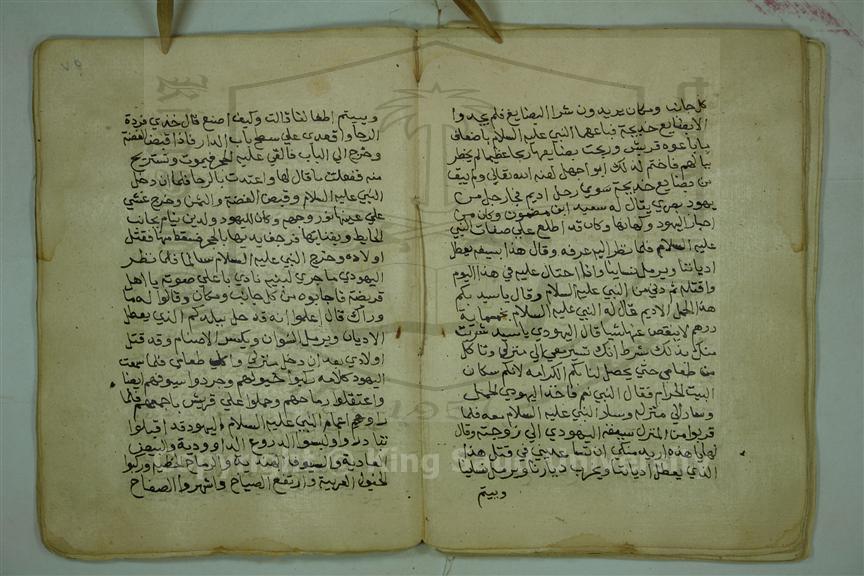 كل جانب ومكان يريدون شرا البضايع فلم يجدوا
الا بضايع خديجة فباعها النبي عليه السلام باضعاف
ما باعوه قريش وربحت بضايعها ربحا عظيما لم يخطر
ببالهم فاغتم لذلك ابو اجهل لعنه الله تعالى ولم يبق
من بضايع خديجة سوي رحل اديم فجا رجل من
يهود بصري يقال له سعيد ابن وكان من
احبار اليهود وكهانها وكان قد اطلع علي صفات النبي
عليه السلام فلما نظر اليه عرفه وقال هذا يسفه يعطل
ادياننا ويرمل نسايبنا وانا احتال عليه في هذا اليوم
واقتله ثم دني من النبي عليه السلام وقال يا سيد بكم
هذا الحمل الاديم قال له النبي عليه السلام بخمسماية
درهم لا ينقص عنها شيا قال اليهودي يا سيد شريت
منك بذلك شرط انك تسير معي الي منزلي وتاكل
من طعامي حتي يحصل لنا بكم الكرامه لانكم سكان
البيت الحرام فقال النبي نعم فاخذ اليهودي الحمل
وسار الي منزله وسار النبي عليه السلام معه فلما
قربوا من المنزل سبقه اليهودي الي زوجته وقال
لها يا هذه اريد منكي ان تساعديني في قتل هذا
الذي يعطل ادياننا ويخرب ديارنا ويرمل نساينا
وييتم
٧٩
وييتم اطفالنا قالت وكيف اصنع قال خذي فردة
الرحا واقعدي علي سطح باب الدار فاذا قبض الفضة
وخرج الي الباب فالقي عليه الحجر فيموت ونستريح
منه ففعلت ما قال لها واعتدت بالرحا فلما ان دخل
النبي عليه السلام وقبض الفضة والثمن وخرج غشي
علي عينها نور وجهه وكان لليهود ولدين نيام بجانب
الحايط وبفنايها فرجفا يديها بالحجر فسقط منها فقتل
اولاده وخرج النبي عليه السلام سالما فلما نظر
اليهودي ما جري لبنيه نادي باعلي صوته يا اهل
قريضة فاجابوه من كل جانب ومكان وقالوا له ما
وراك قال اعلموا انه قد حل ببلدكم الذي يعطل
الاديان ويرمل النسوان ويكسر الاصنام وقد قتل
اولادي بعد ان دخل منزلي واكل طعامي فلما سمعت
اليهود كلامه ركبوا خيولهم وجردوا سيوفهم ايضا
واعتقلوا رماحهم وحملوا علي قريش باجمعهم فلما
راوهم اعمام النبي عليه السلام واليهود قد اقبلوا
تبادروا ولبسوا الدروع الداوودية والبيض
العادية والسيوف الهنديه والرماح الخطيه وركبوا
الخيول العربية وارتفع الصياح واشهروا الصفاح